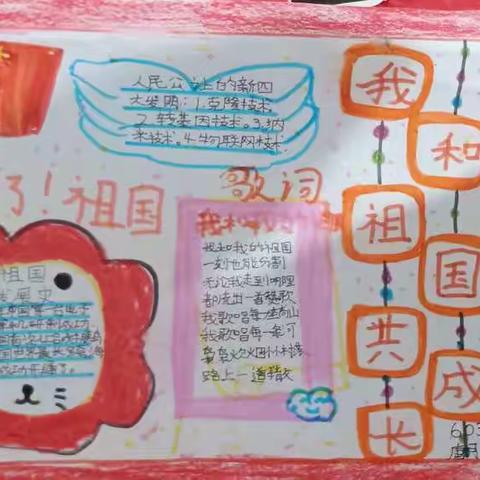 人民公社的新四
大发明：1.克隆技术
2.转基因技术。3.纳
米技术。4.物联网技术
了！祖国
歌词
我和我的祖国
我和我的祖国
一刻也不能分割
无论我走到哪里
都流出一首赞歌
我歌唱每一座高山
我歌唱每一条河
袅袅炊烟小小村落
路上一道辙
祖国
发展史
成功开练了。
我
和
祖
国
共
成
长